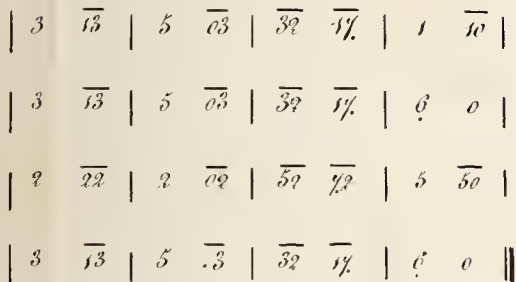 | 3 1̅3̅ | 5 0̅3̅ | 3̅2̅ 1̅7̣̅ | 1 1̅0̅ |
| 3 1̅3̅ | 5 0̅3̅ | 3̅2̅ 1̅7̣̅ | 6̣ 0 |
| 2 2̅2̅ | 2 0̅2̅ | 5̅2̅ 7̣̅2̅ | 5 5̅0̅ |
| 3 1̅3̅ | 5 .̅3̅ | 3̅2̅ 1̅7̣̅ | 6̣ 0 ||